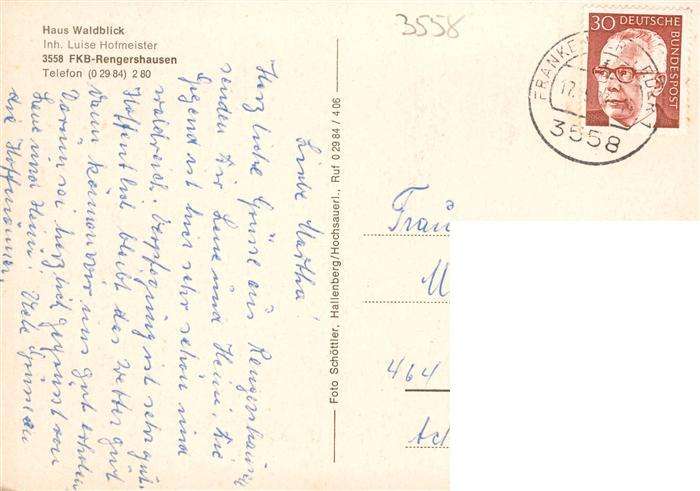 Haus Waldblick
Inh. Luise Hofmeister
3558 FKB-Rengershausen
Telefon (0 29 84) 2 80
3558
30 DEUTSCHE
BUNDESPOST
FRANKEN
17.
3558
Liebe Martha!
Herzliche Grüsse aus Rengershausen
senden dir Lene und Heini. Die
Gegend ist hier sehr schön und
waldreich. Verpflegung ist sehr gut.
Hoffentlich bleibt das Wetter gut
dann können wir uns gut erholen
Darum sei herzlich gegrüsst von
Lene und Heini. Viele Grüsse an
die Hoffmänner.
Foto Schöttler, Hallenberg/Hochsauerl., Ruf 0 29 84 / 4 06
Frau
464